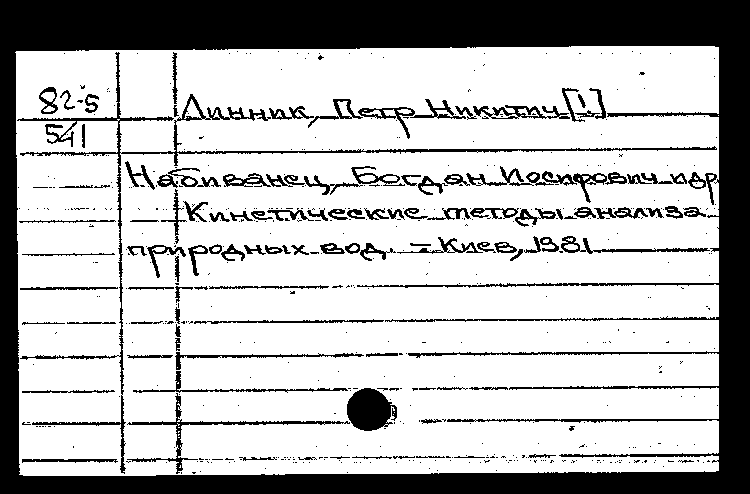 82-5
541
Линник, Петр Никитич [!]
Набиванец, Богдан Иосифович и др
Кинетические методы анализа
природных вод. – Киев, 1981